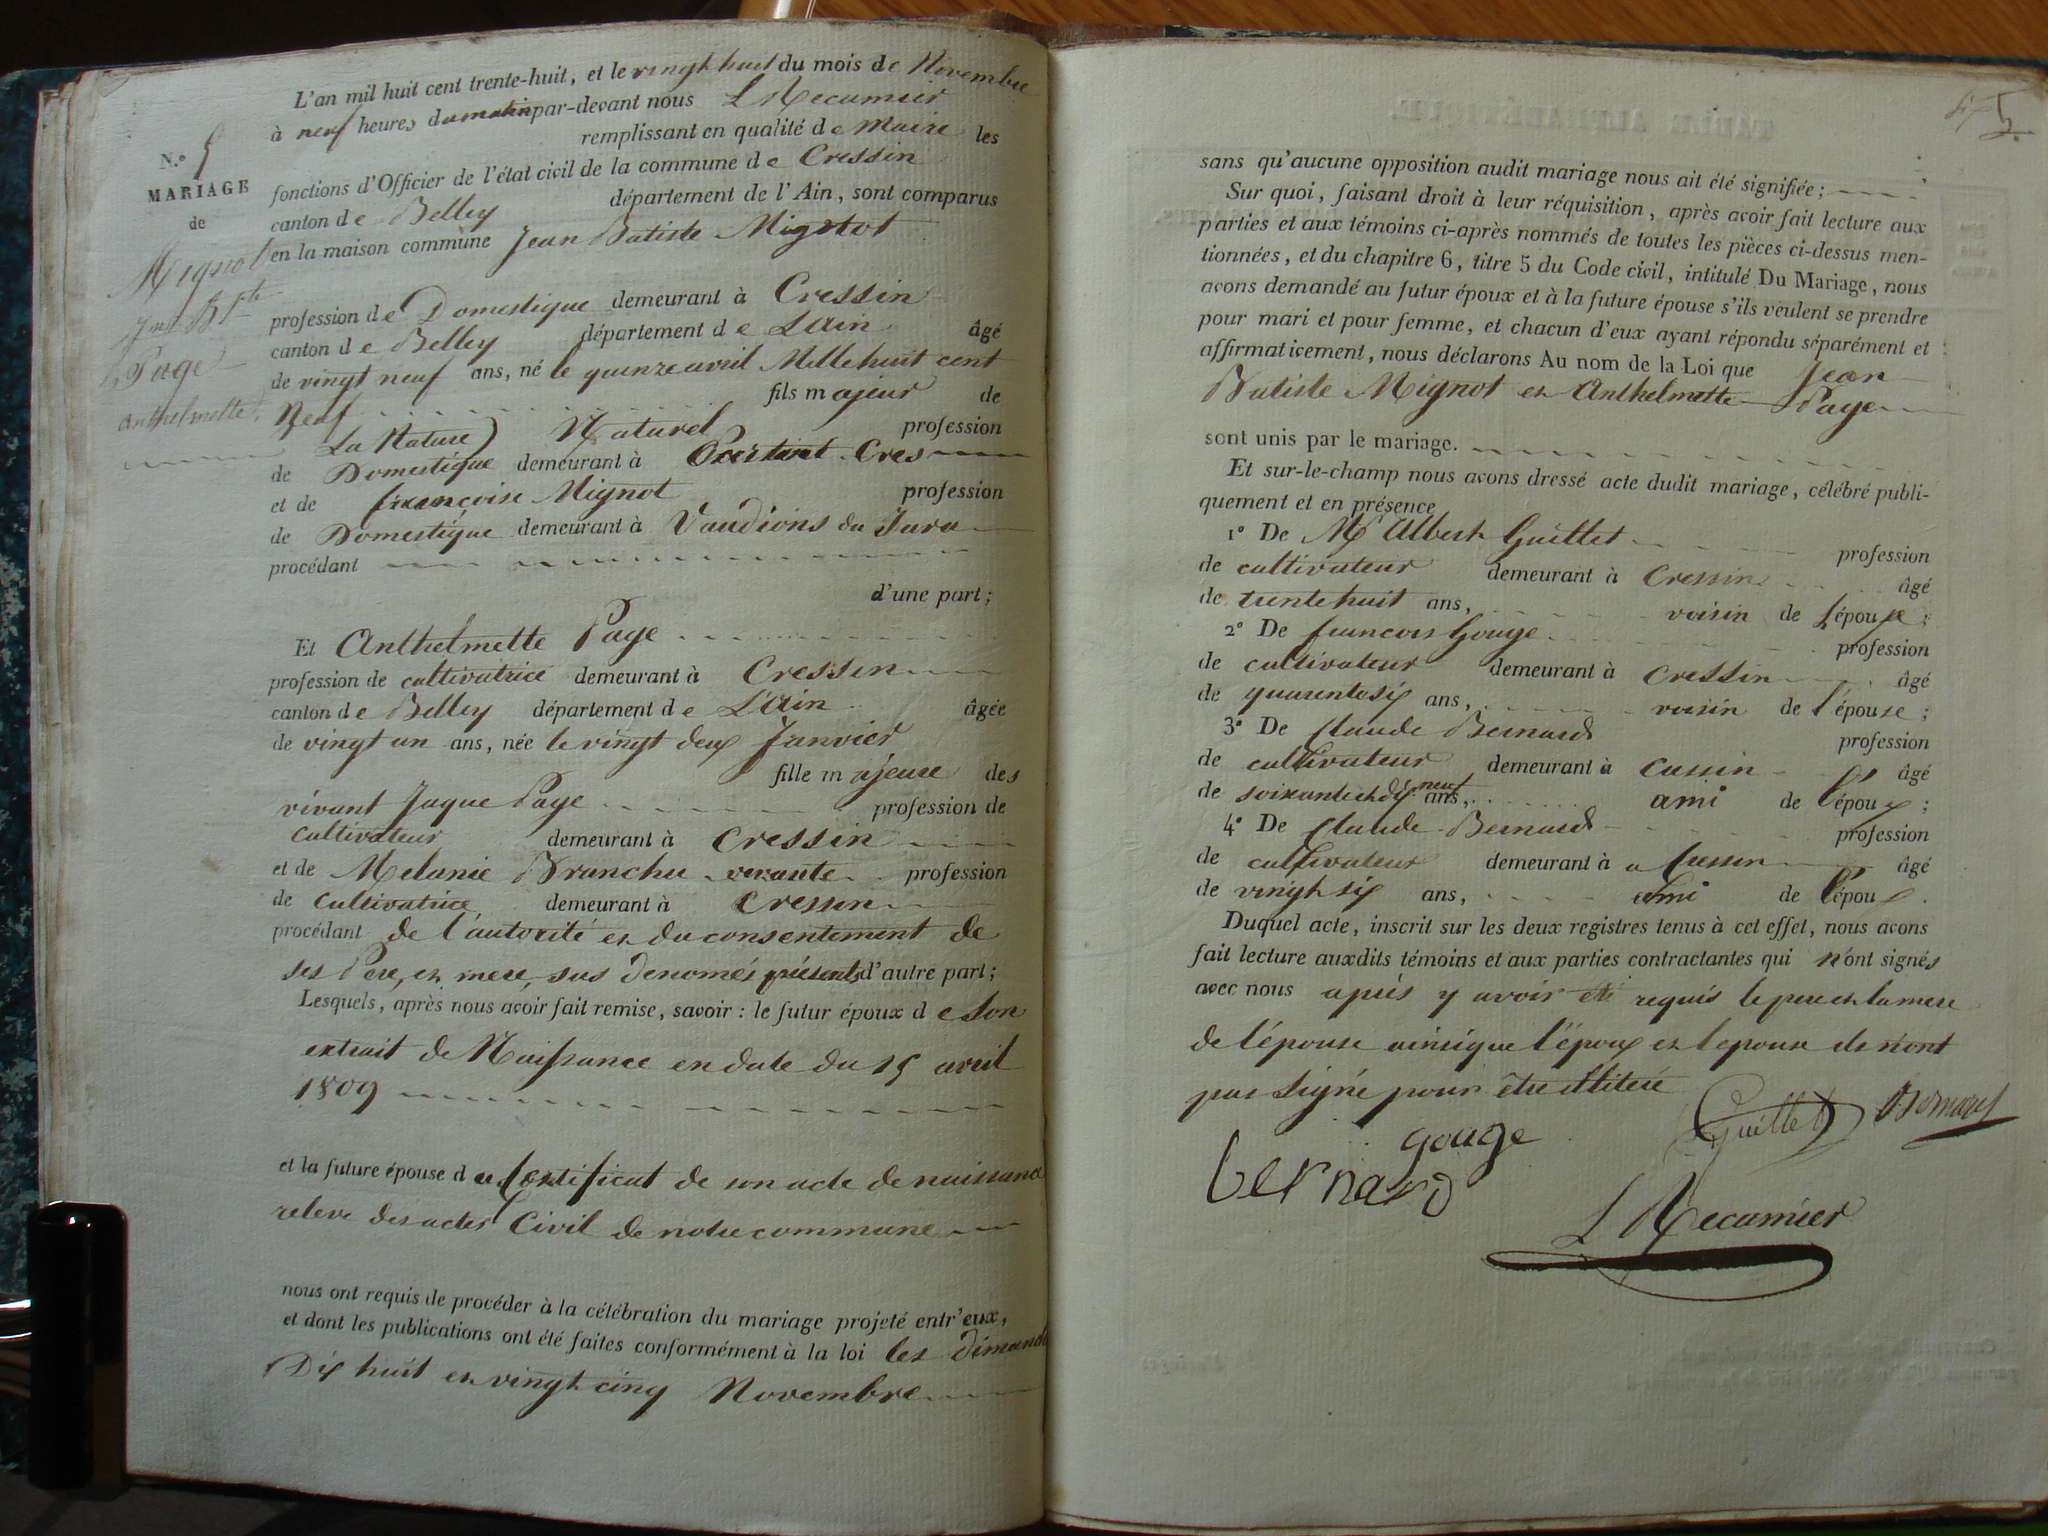 L'an mil huit cent trente-huit, et le vingt huit du mois de Novembre
à neuf heures du matin par-devant nous L Recamier
remplissant en qualité de Maire les
N.o 5
MARIAGE
de
Mignot
Jn Bte
Page
anthelmette
fonctions d'Officier de l'état civil de la commune de Cressin
canton de Belley département de l'Ain, sont comparus
en la maison commune Jean Batiste Mignot
profession de Domestique demeurant à Cressin
canton de Belley département de Lain âgé
de vingt neuf ans, né le quinze avril Mille huit cent
Neuf fils majeur de
La Nature) Naturel profession
de Domestique demeurant à Cres
et de françoise Mignot profession
de Domestique demeurant à Vaudions du Jura
procédant
d'une part;
Et Anthelmette Page
profession de cultivatrice demeurant à Cressin
canton de Belley département de L'ain âgée
de vingt un ans, née le vingt deux Janvier
fille majeure des
vivant Jaque Page profession de
cultivateur demeurant à Cressin
et de Melanie Branchu vivante profession
de Cultivatrice demeurant à Cressin
procédant de l'autorité et du consentement de
ses Pere, et mere, sus denomés présents d'autre part;
Lesquels, après nous avoir fait remise, savoir: le futur époux de son
extrait de Naissance en date du 15 avril
1809
et la future épouse du Certificat de son acte de naissance
releve des actes Civil de notre commune
nous ont requis de procéder à la célébration du mariage projeté entr'eux,
et dont les publications ont été faites conformément à la loi les dimanche
Dix huit et vingt cinq Novembre
5
sans qu'aucune opposition audit mariage nous ait été signifiée;
Sur quoi, faisant droit à leur réquisition, après avoir fait lecture aux
parties et aux témoins ci-après nommés de toutes les pièces ci-dessus men-
tionnées, et du chapitre 6, titre 5 du Code civil, intitulé Du Mariage, nous
avons demandé au futur époux et à la future épouse s'ils veulent se prendre
pour mari et pour femme, et chacun d'eux ayant répondu séparément et
affirmativement, nous déclarons Au nom de la Loi que Jean
Batiste Mignot et Anthelmette Page
sont unis par le mariage.
Et sur-le-champ nous avons dressé acte dudit mariage, célébré publi-
quement et en présence
1o De Mr Albert Guillet profession
de cultivateur demeurant à Cressin âgé
de trente huit ans, voisin de l'épouse;
2o De francois Gouge profession
de cultivateur demeurant à Cressin âgé
de quarente six ans, voisin de l'épouse;
3o De Claude Bernard profession
de cultivateur demeurant à Cressin âgé
de soixante et dix neuf ans, ami de l'époux;
4o De Claude Bernard profession
de cultivateur demeurant à a Cressin âgé
de vingt six ans, ami de l'époux.
Duquel acte, inscrit sur les deux registres tenus à cet effet, nous avons
fait lecture auxdits témoins et aux parties contractantes qui n'ont signés
avec nous apiés y avoir été requis le pere et la mere
de l'épouse ainsique l'époux et l'epouse ils n'ont
pas signé pour être illiteré
Guillet Bernard
gouge
bernard
L Recamier